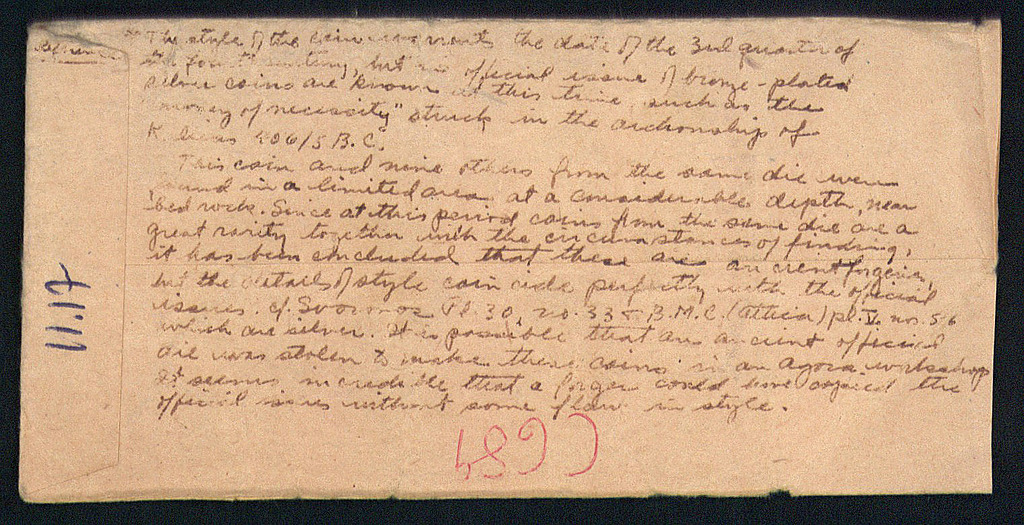 The style of the coin warrants the date of the 3rd quarter of
the fourth century, but no official issue of bronze-plated
silver coins are known at this time, such as the
"money of necessity" struck in the archonship of
Kallias 406/5 B.C.
This coin and nine others from the same die were
found in a limited area at a considerable depth, near
bed rock. Since at this period coins from the same die are a
great rarity together with the circumstances of finding,
it has been concluded that these are ancient forgeries,
but the details of style coincide perfectly with the official
issues. cf. Svoronos Pl. 30, no. 33 & B.M.C. (Attica) pl. V nos. 5, 6
which are silver. It is possible that an ancient official
die was stolen to make these coins in an agora workshop
It seems incredible that a forger could have copied the
official issues without some flaw in style.
11.17